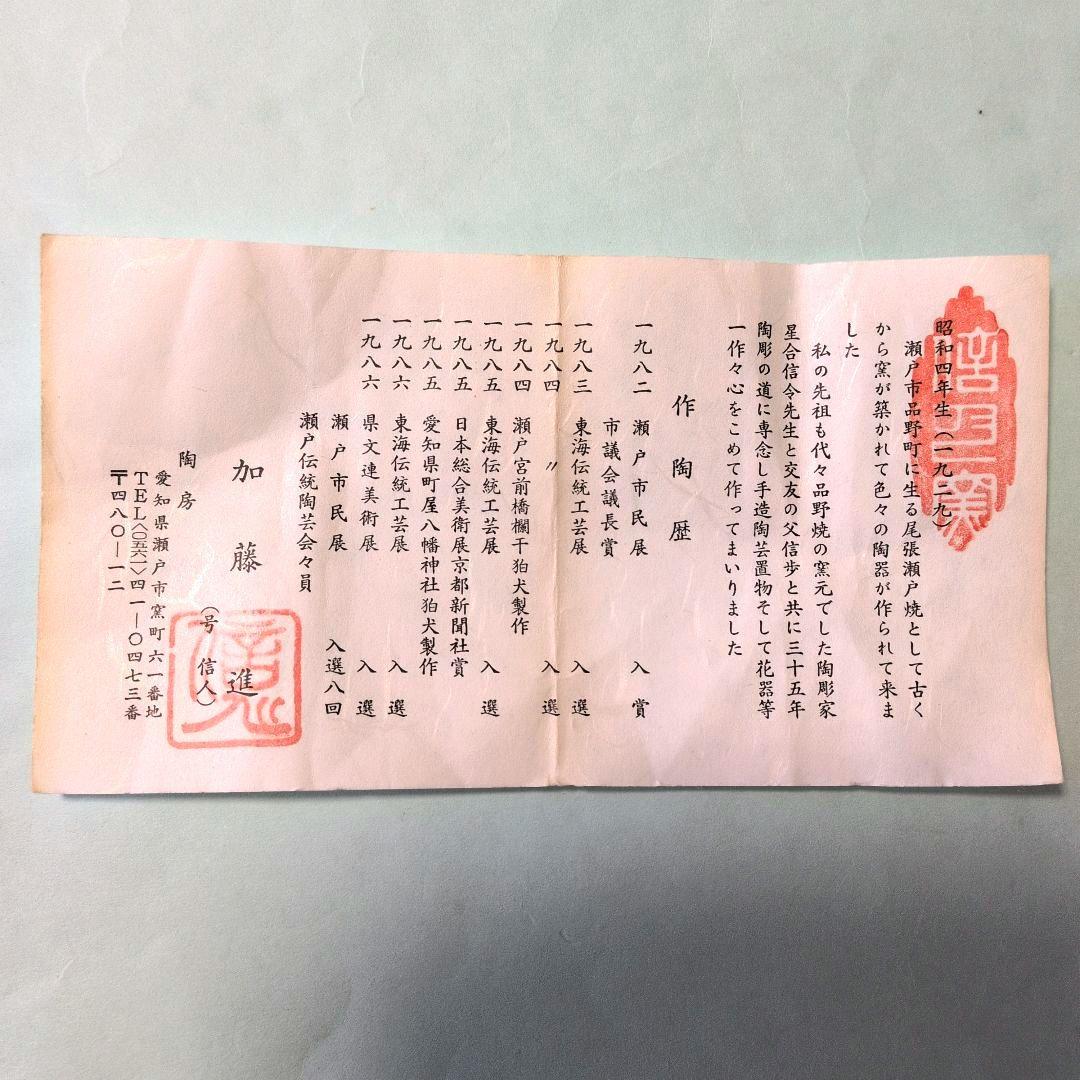 昭和四年生(一九二九)
瀬戸市品野町に生る尾張瀬戸焼として古く
から窯が築かれて色々の陶器が作られて来ま
した
私の先祖も代々品野焼の窯元でした陶彫家
星合信令先生と交友の父信歩と共に三十五年
陶彫の道に専念し手造陶芸置物そして花器等
一作々心をこめて作ってまいりました
作陶歴
一九八二 瀬戸市民展 入賞
市議会議長賞
一九八三 東海伝統工芸展 入選
一九八四 〃 入選
一九八四 瀬戸宮前橋欄干狛犬製作
一九八五 東海伝統工芸展 入選
一九八五 日本総合美術展京都新聞社賞
一九八五 愛知県町屋八幡神社狛犬製作
一九八六 東海伝統工芸展 入選
一九八六 県文連美術展 入選
瀬戸市民展 入選八回
瀬戸伝統陶芸会々員
加藤進
(号 信人)
陶房
愛知県瀬戸市窯町六一番地
TEL〈〇五六一〉四一―〇四七三番
〒四八〇―一二